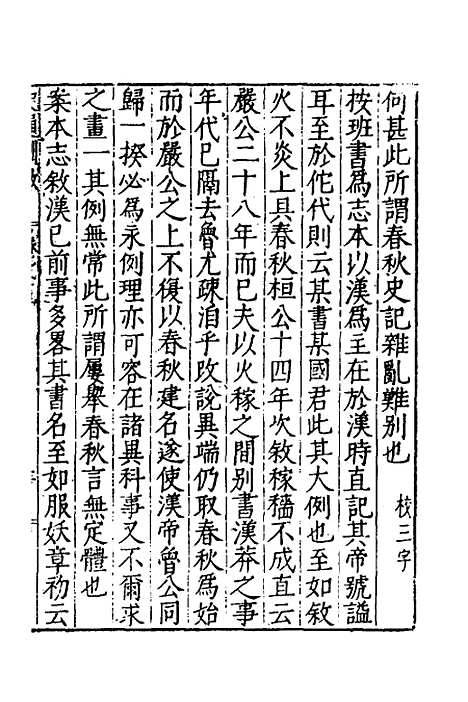 何甚此所謂春秋史記雜亂難别也 校三字
按班書爲志本以漢爲主在於漢時直記其帝號謚
耳至於佗代則云某書某國君此其大例也至如敘
火不炎上具春秋桓公十四年次敘稼穡不成直云
嚴公二十八年而巳夫以火稼之間别書漢莽之事
年代巳隔去魯尤疎洎乎改說異端仍取春秋爲始
而於嚴公之上不復以春秋建名遂使漢帝魯公同
歸一揆必爲永例理亦可容在諸異科事又不爾求
之畫一其例無常此所謂屢舉春秋言無定體也
案本志敘漢巳前事多畧其書名至如服妖章初云